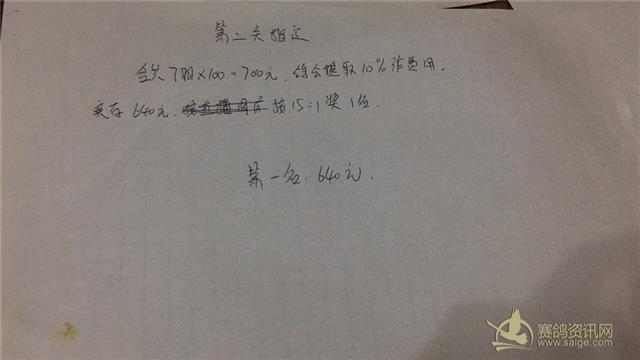 第二关指定
会员7羽×100=700元.鸽会提取10%作费用.
实存640元.按15=1奖1名.
第一名:640元.
赛鸽资讯网
www.saige.com